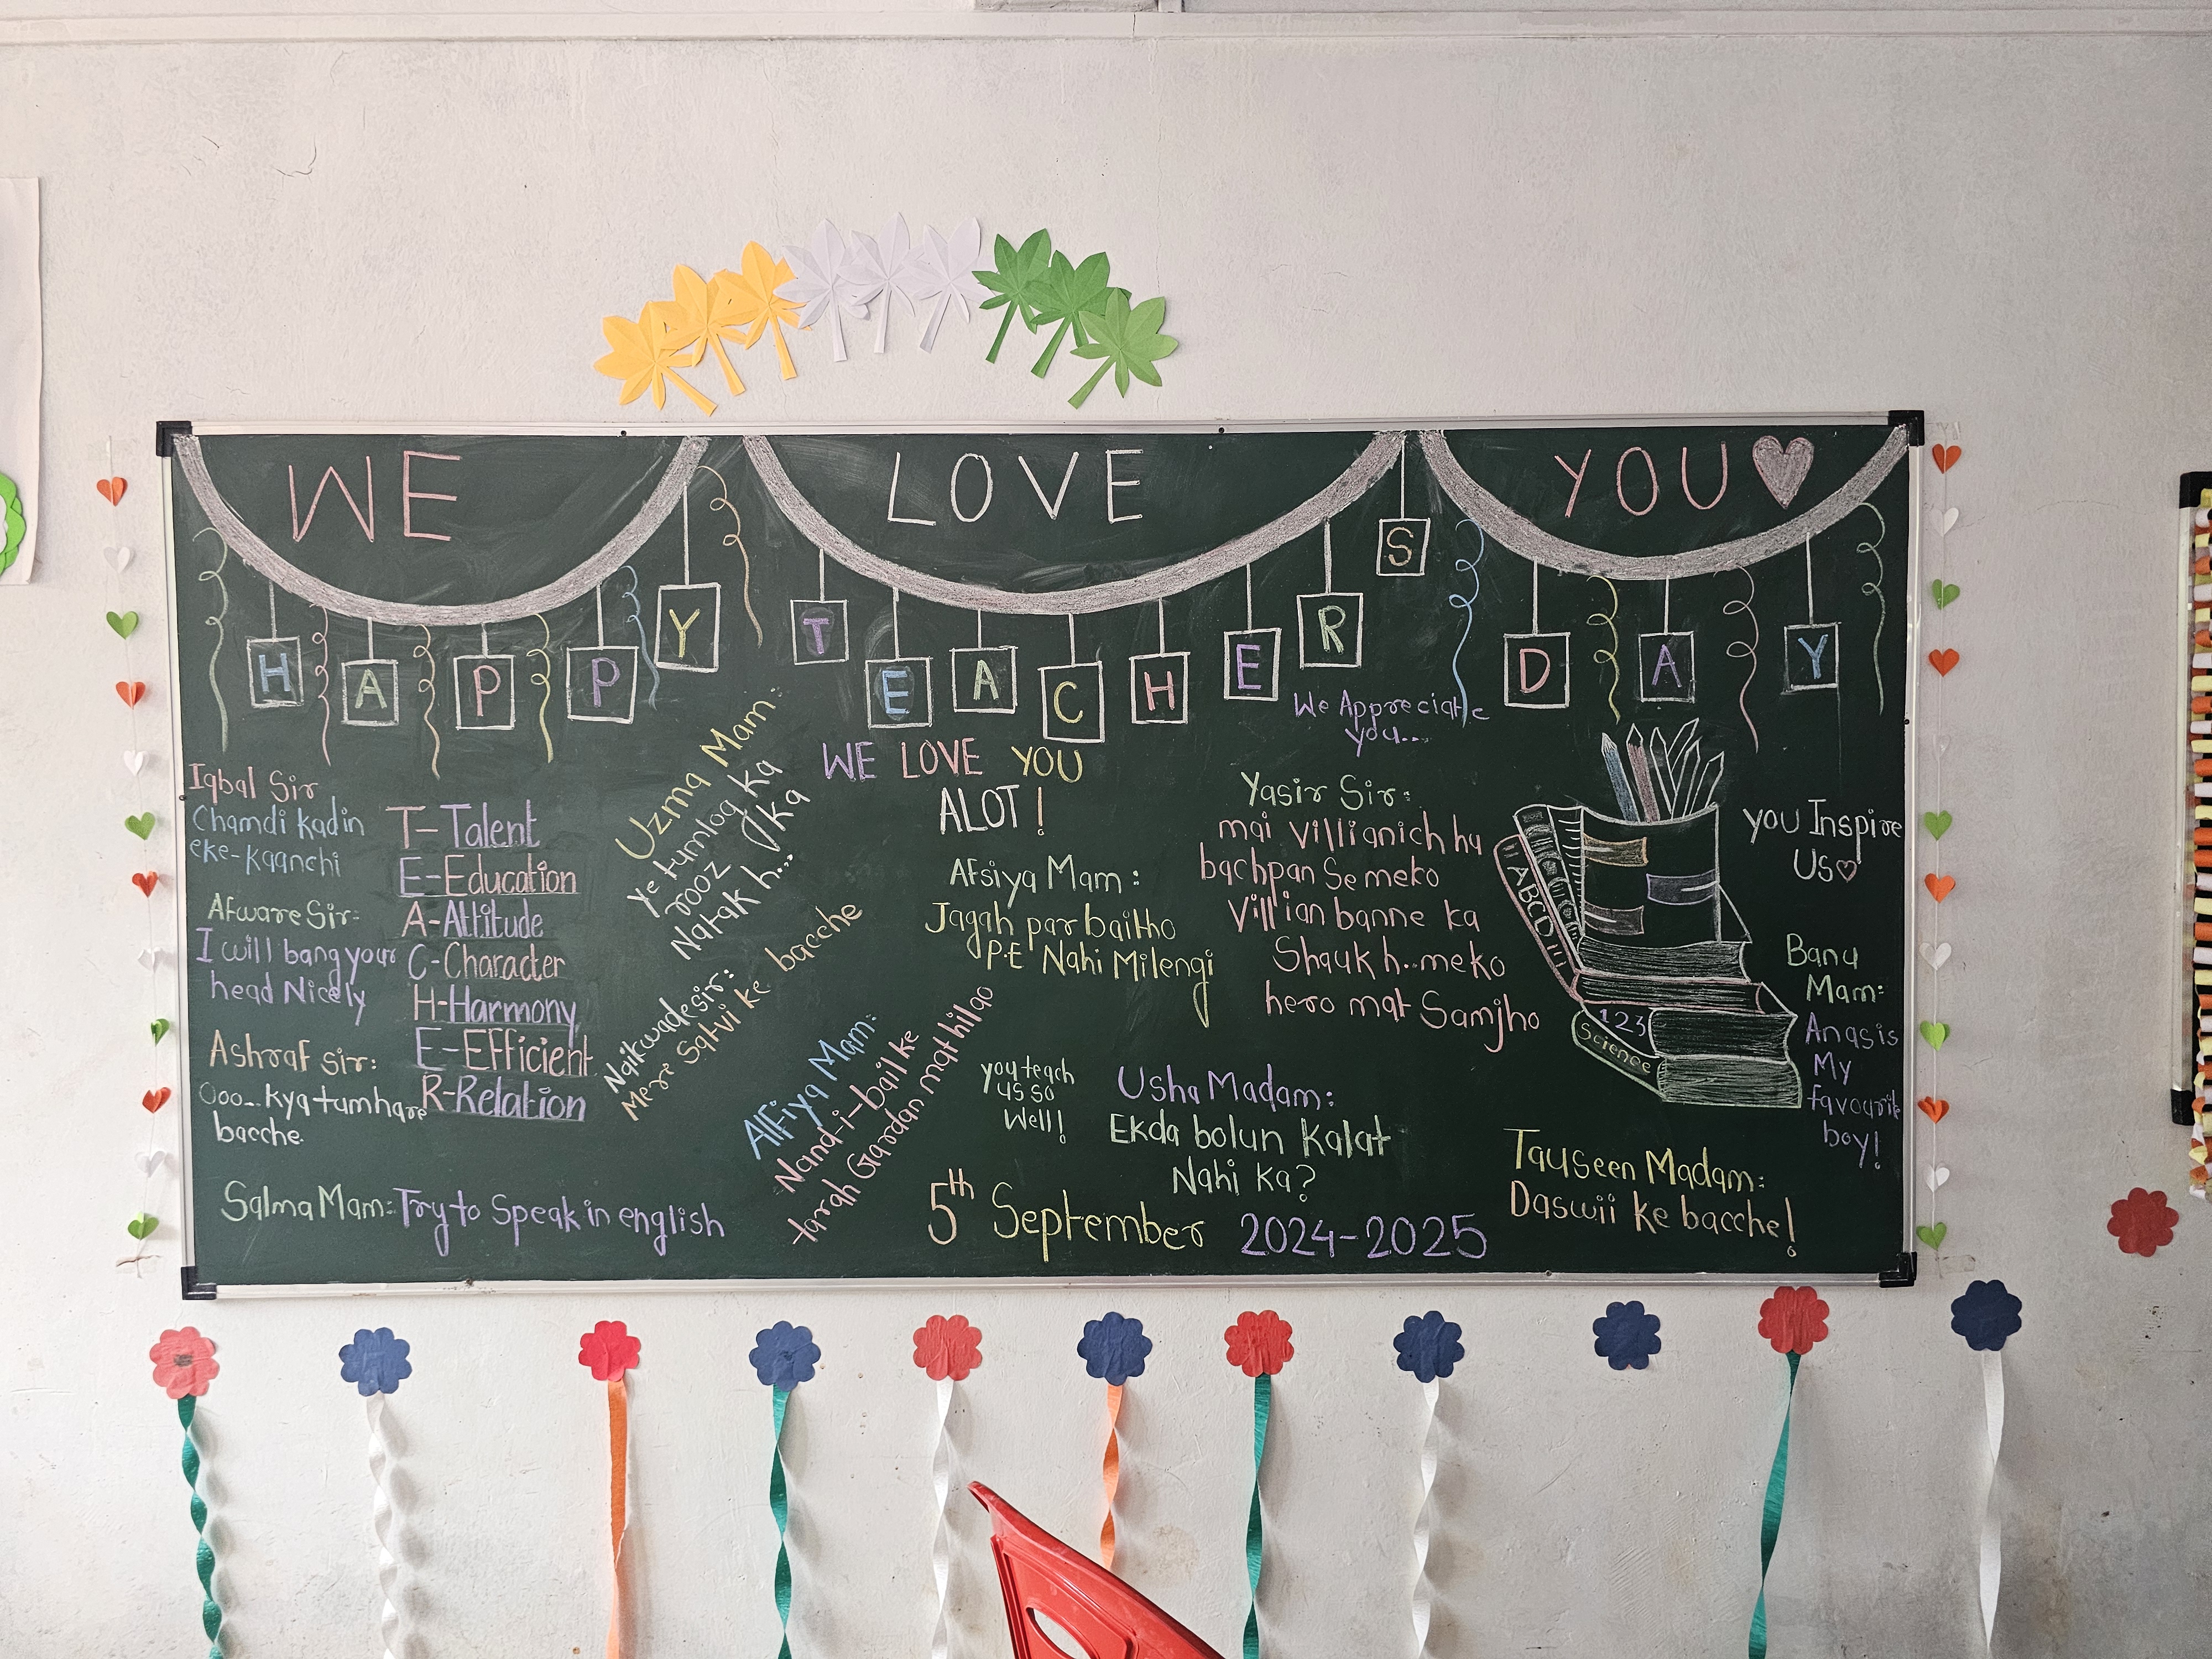 WE LOVE YOU
HAPPY TEACHERS DAY
We Appreciate
you...
Iqbal Sir
Chamdi kadin
eke-kaanchi
Afware Sir:
I will bang your
head Nicely
Ashraf sir:
Ooo... kya tumhare
bacche.
Salma Mam: Try to Speak in english
T-Talent
E-Education
A-Attitude
C-Character
H-Harmony
E-Efficient
R-Relation
Uzma Mam:
Ye tumlog ka
rooz ka
Natak h...
Naikwade sir:
Meri Satvi ke bacche
Alfiya Mam:
Nand-i-bail ke
tarah Gardan mat hilao
WE LOVE YOU
ALOT!
Afsiya Mam:
Jagah par baitho
P.E Nahi Milengi
you teach
us so
Well!
Usha Madam:
Ekda bolun Kalat
Nahi ka?
5th September 2024-2025
Yasir Sir:
mai villianich hu
bachpan Se meko
Villian banne ka
Shauk h..meko
hero mat Samjho
ABCD
123
Science
you Inspire
Us
Banu
Mam:
Anas is
My
favourite
boy!
Tauseen Madam:
Daswii ke bacche!